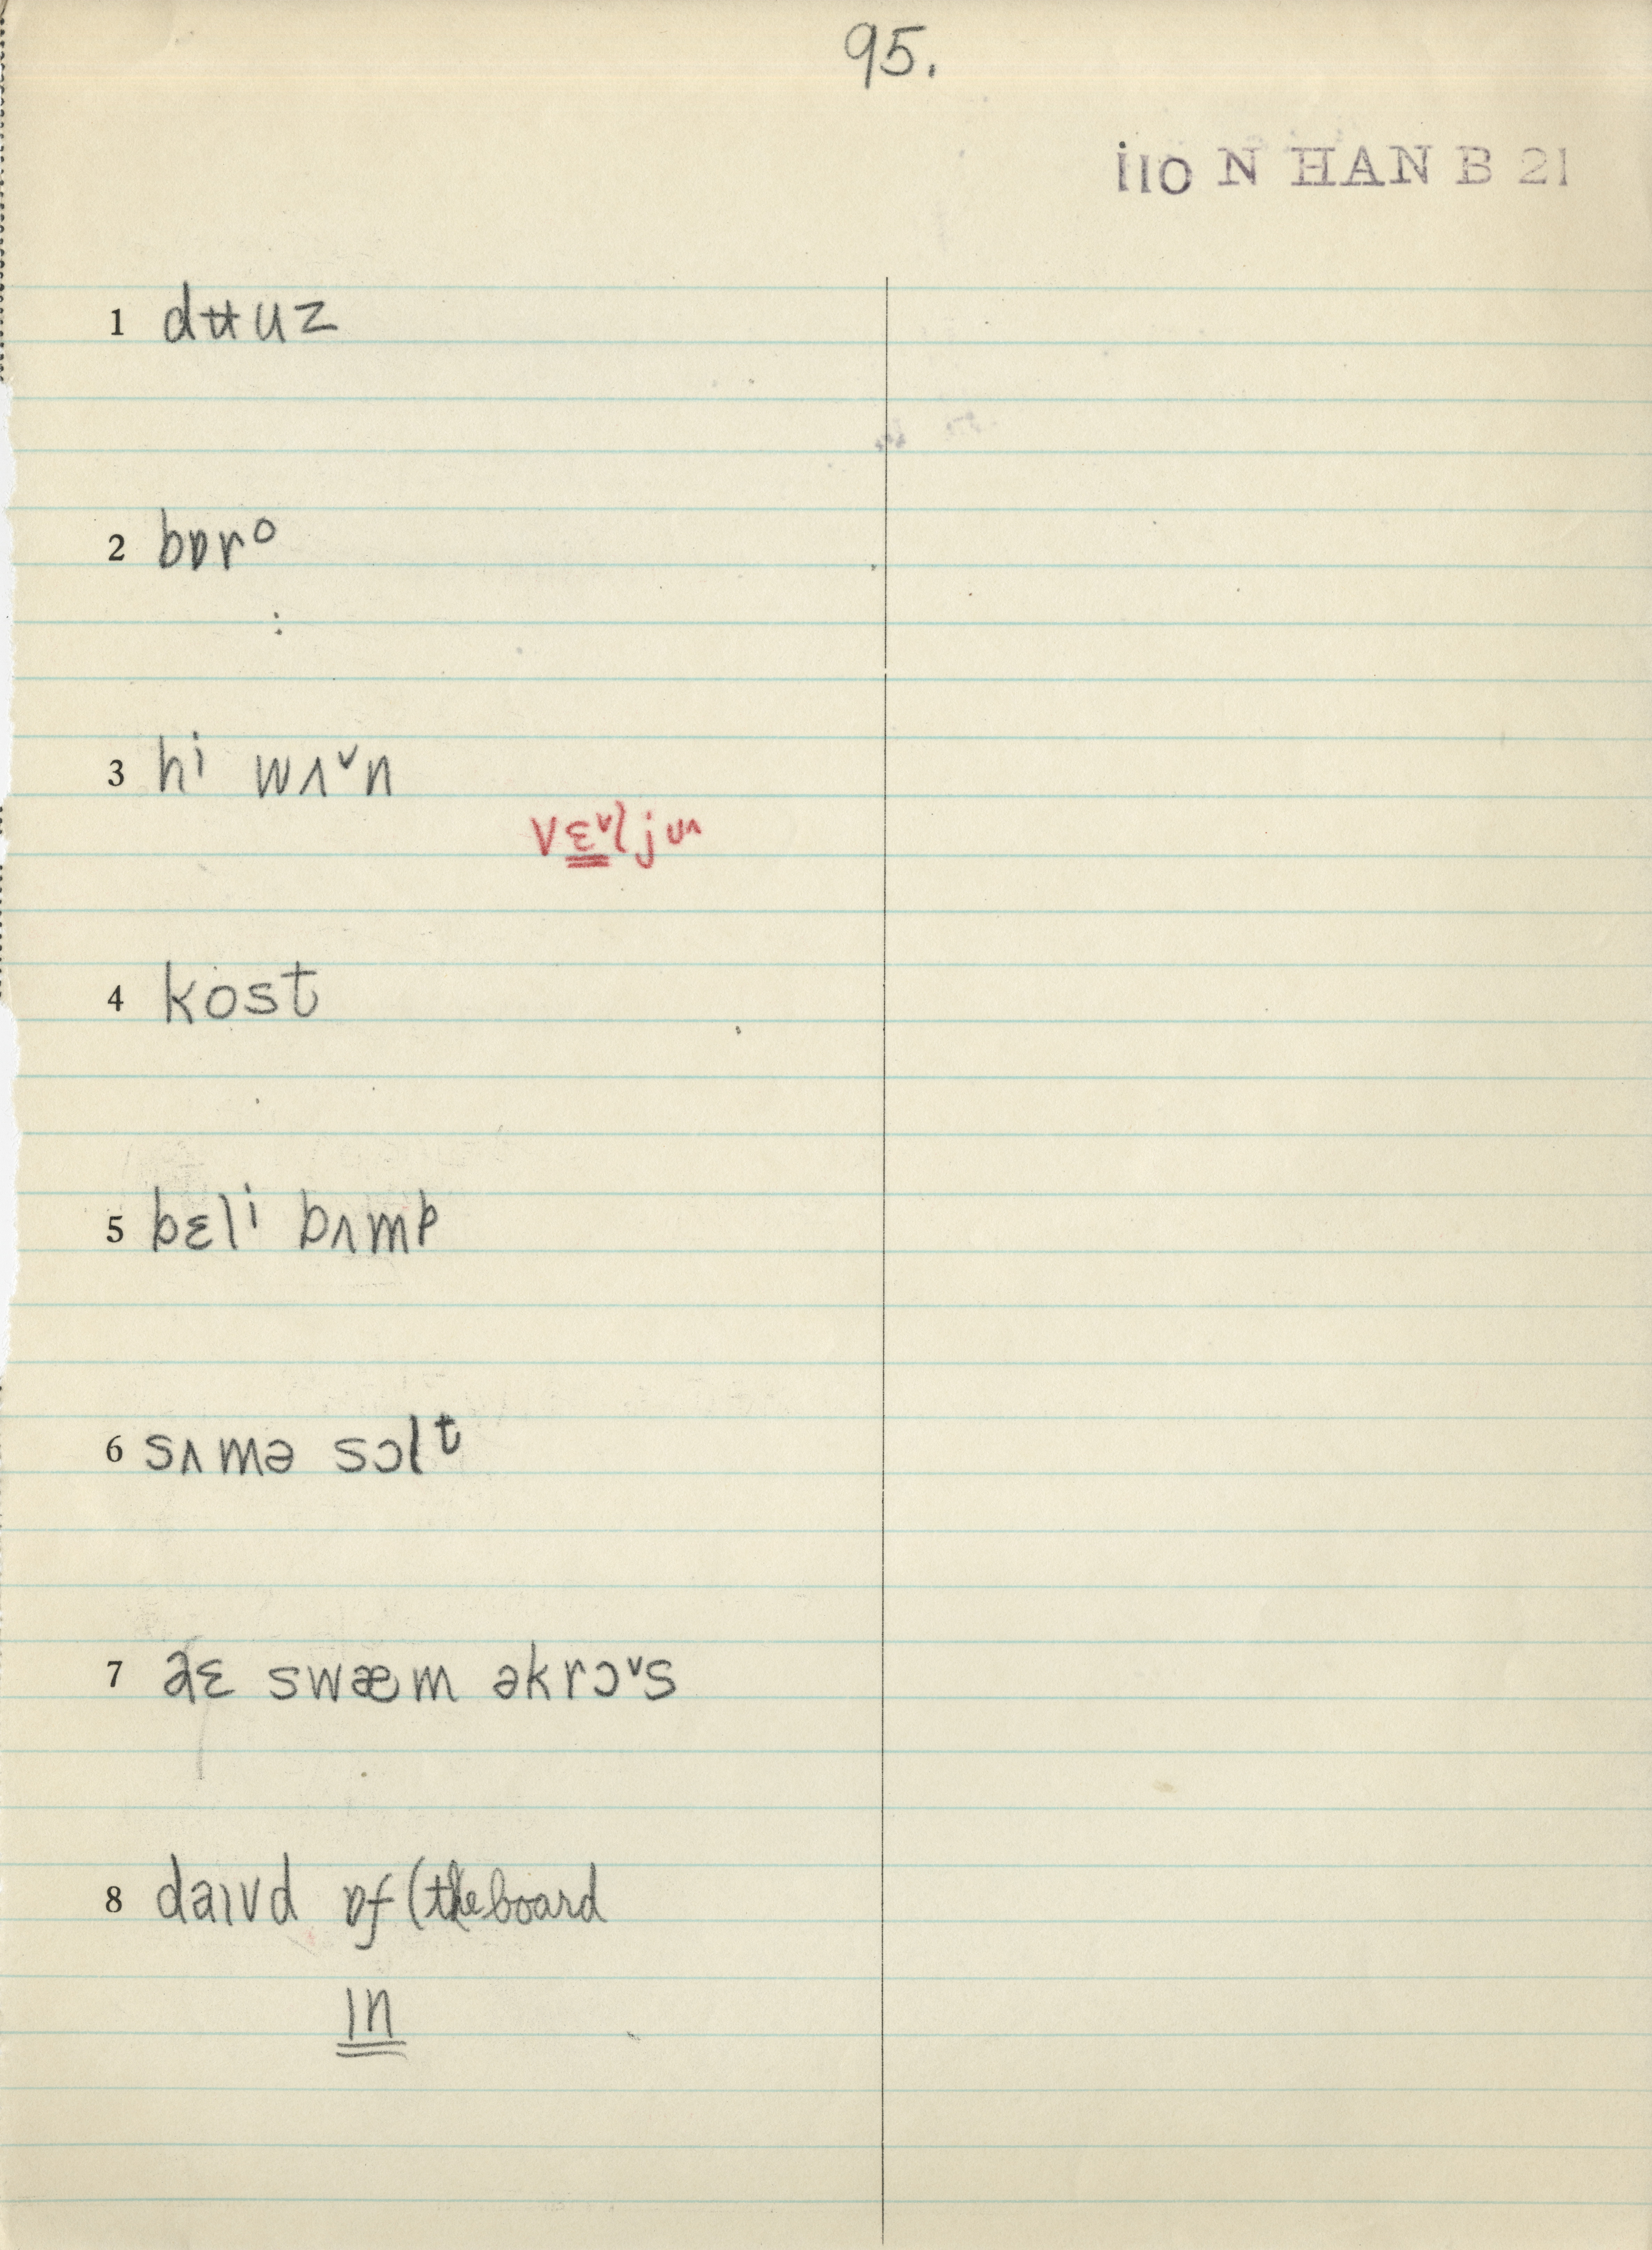 95.
i110 N HAN B 21
1 dʉuz
2 bɒrᵒ
3 hⁱ wʌ˅n
vɛ˅ljʊʌ
4 kost
5 bɛlⁱ bʌmp
6 sʌmə sɔlᵗ
7 aɛ swæm əkrɔ˅s
8 daɪvd ɒf (the board
ɪn